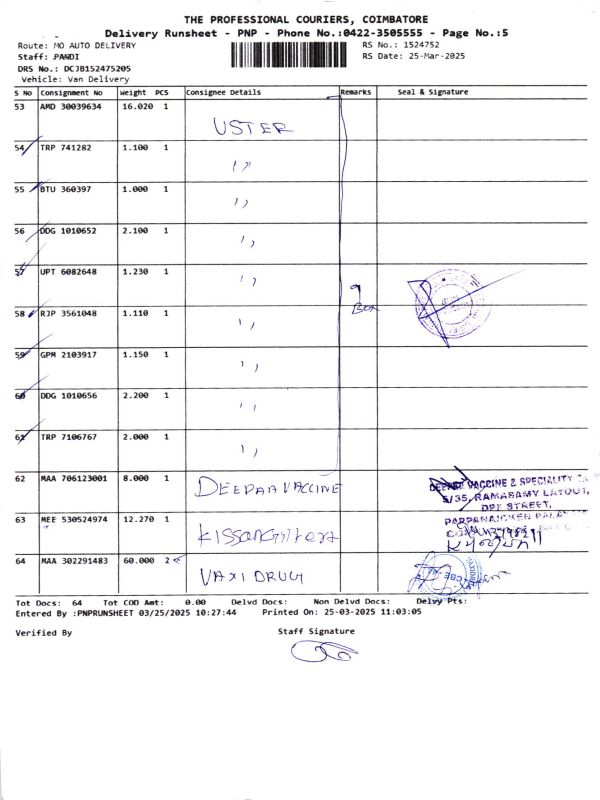 THE PROFESSIONAL COURIERS, COIMBATORE
Delivery Runsheet - PNP - Phone No.:0422-3505555 - Page No.:5
Route: MO AUTO DELIVERY RS No.: 1524752
Staff: PANDI RS Date: 25-Mar-2025
DRS No.: DCJB152475205
Vehicle: Van Delivery
S No Consignment No Weight PCS Consignee Details Remarks Seal & Signature
53 AMD 30039634 16.020 1
USTER
54 TRP 741282 1.100 1
〃
55 BTU 360397 1.000 1
〃
56 DDG 1010652 2.100 1
〃
57 UPT 6082648 1.230 1
〃 9
58 RJP 3561048 1.110 1 Box
〃
59 GPM 2103917 1.150 1
〃
60 DDG 1010656 2.200 1
〃
61 TRP 7106767 2.000 1
〃
62 MAA 706123001 8.000 1
DEEPAA VACCINE VACCINE & SPECIALITY
5/35, RAMASAMY LAYOUT,
DPF STREET,
63 MEE 530524974 12.270 1 PAPPANAICKEN
64 MAA 302291483 60.000 2
VAXI DRUG
Tot Docs: 64 Tot COD Amt: 0.00 Delvd Docs: Non Delvd Docs: Delvy Pts:
Entered By :PNPRUNSHEET 03/25/2025 10:27:44 Printed On: 25-03-2025 11:03:05
Verified By Staff Signature